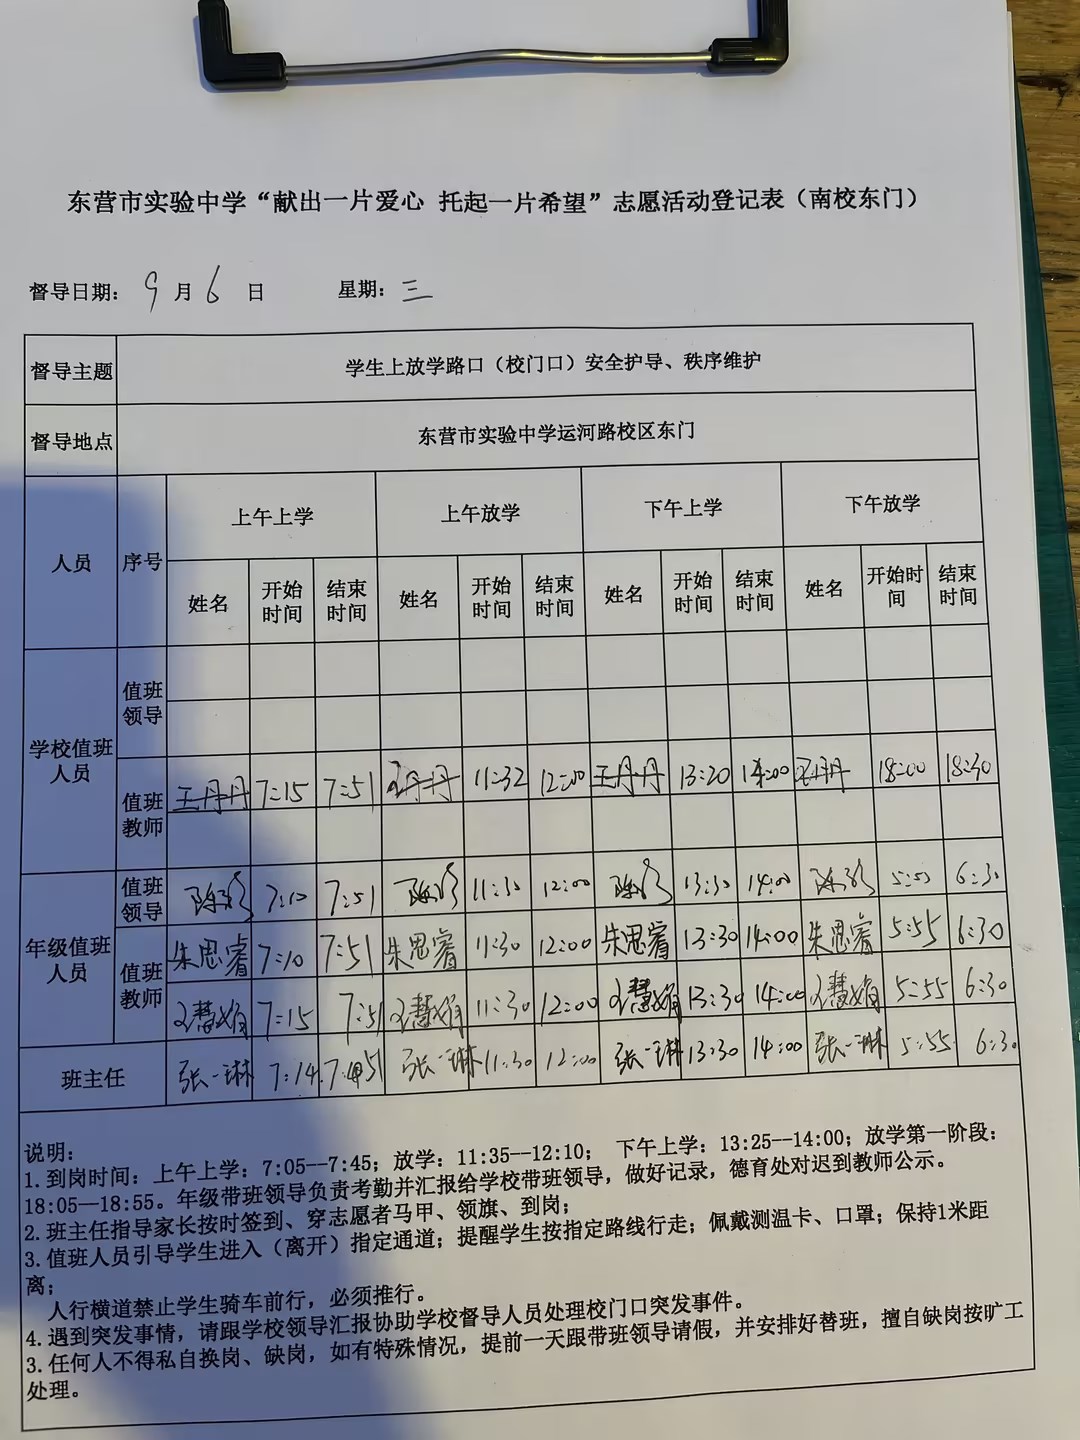 东营市实验中学“献出一片爱心 托起一片希望”志愿活动登记表（南校东门）
督导日期： 9 月 6 日 星期：三
督导主题 学生上放学路口（校门口）安全护导、秩序维护
督导地点 东营市实验中学运河路校区东门
人员 序号 上午上学 上午放学 下午上学 下午放学
姓名 开始时间 结束时间 姓名 开始时间 结束时间 姓名 开始时间 结束时间 姓名 开始时间 结束时间
学校值班人员 值班领导
值班教师 王丹丹 7:15 7:51 王丹丹 11:32 12:00 王丹丹 13:20 14:00 王丹丹 18:00 18:30
年级值班人员 值班领导 7:10 7:51 11:30 12:00 13:30 14:00 6:30
值班教师 朱思睿 7:10 7:51 朱思睿 11:30 12:00 朱思睿 13:30 14:00 朱思睿 5:55 6:30
慧娟 7:15 7:51 慧娟 11:30 12:00 慧娟 13:30 14:00 慧娟 5:55 6:30
班主任 张一琳 7:14 张一琳 11:30 12:00 张一琳 13:30 14:00 张一琳 5:55 6:30
说明：
1.到岗时间：上午上学：7:05--7:45；放学：11:35--12:10； 下午上学：13:25--14:00；放学第一阶段：
18:05—18:55。年级带班领导负责考勤并汇报给学校带班领导，做好记录，德育处对迟到教师公示。
2.班主任指导家长按时签到、穿志愿者马甲、领旗、到岗；
3.值班人员引导学生进入（离开）指定通道；提醒学生按指定路线行走；佩戴测温卡、口罩；保持1米距
离；
人行横道禁止学生骑车前行，必须推行。
4.遇到突发事情，请跟学校领导汇报协助学校督导人员处理校门口突发事件。
3.任何人不得私自换岗、缺岗，如有特殊情况，提前一天跟带班领导请假，并安排好替班，擅自缺岗按旷工
处理。